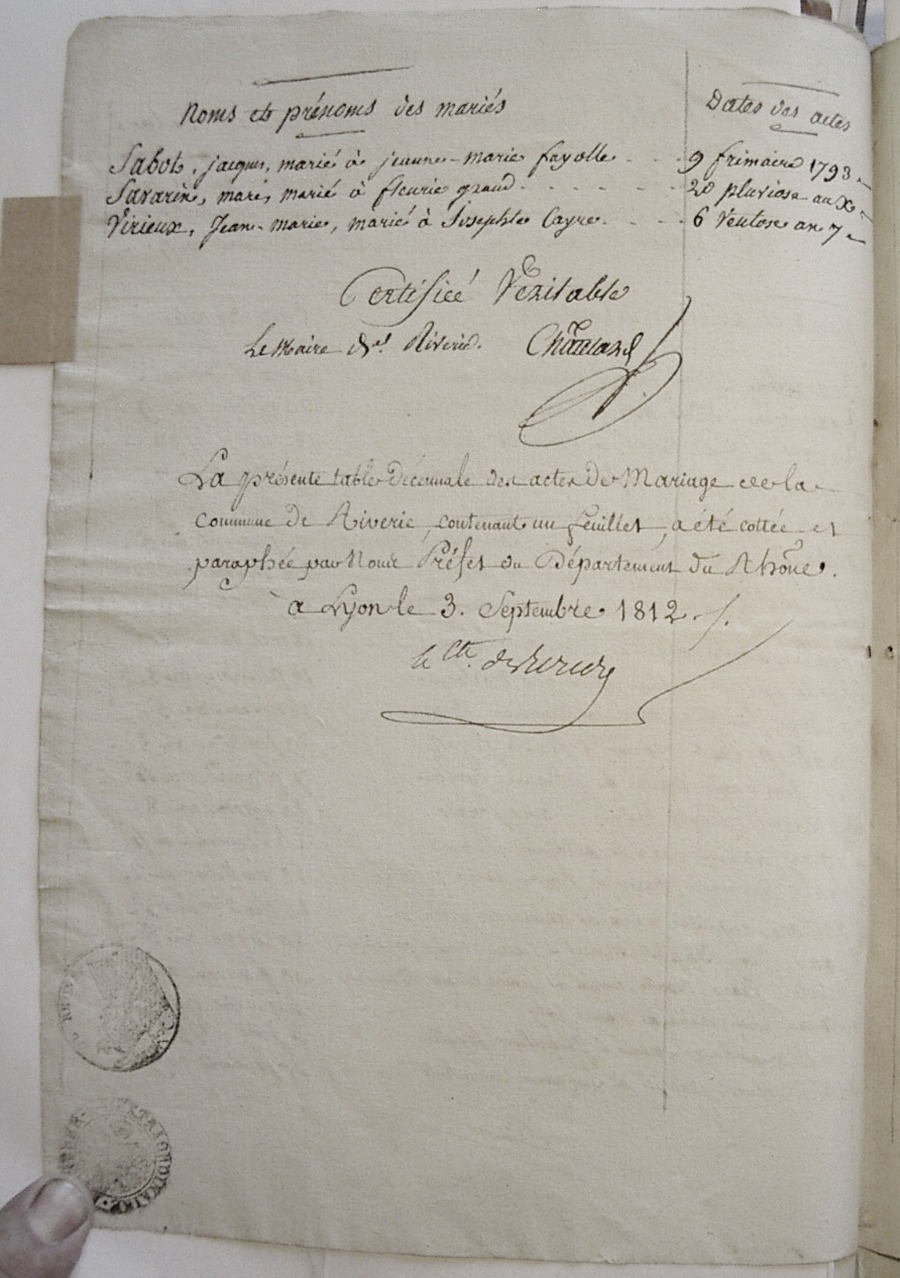 Noms et prénoms des mariés
Dates des actes
Sabot, jacques, marié à jeanne-marie fayolle 9 frimaire 1793
Savarin, marié à fleurie graud 20 pluviose an X
Virieux, Jean-marie, marié à Josephte Cayre 6 Ventose an 7
Certifiéé Véritable
Le Maire de Riverie.
La présente table décennale des actes de Mariage de la
commune de Riverie, contenant un feuillet, a été cottée et
paraphée par Nous Préfet du Département du Rhône.
à Lyon le 3. Septembre 1812
le cte. de
EXTRAORDINAIRE